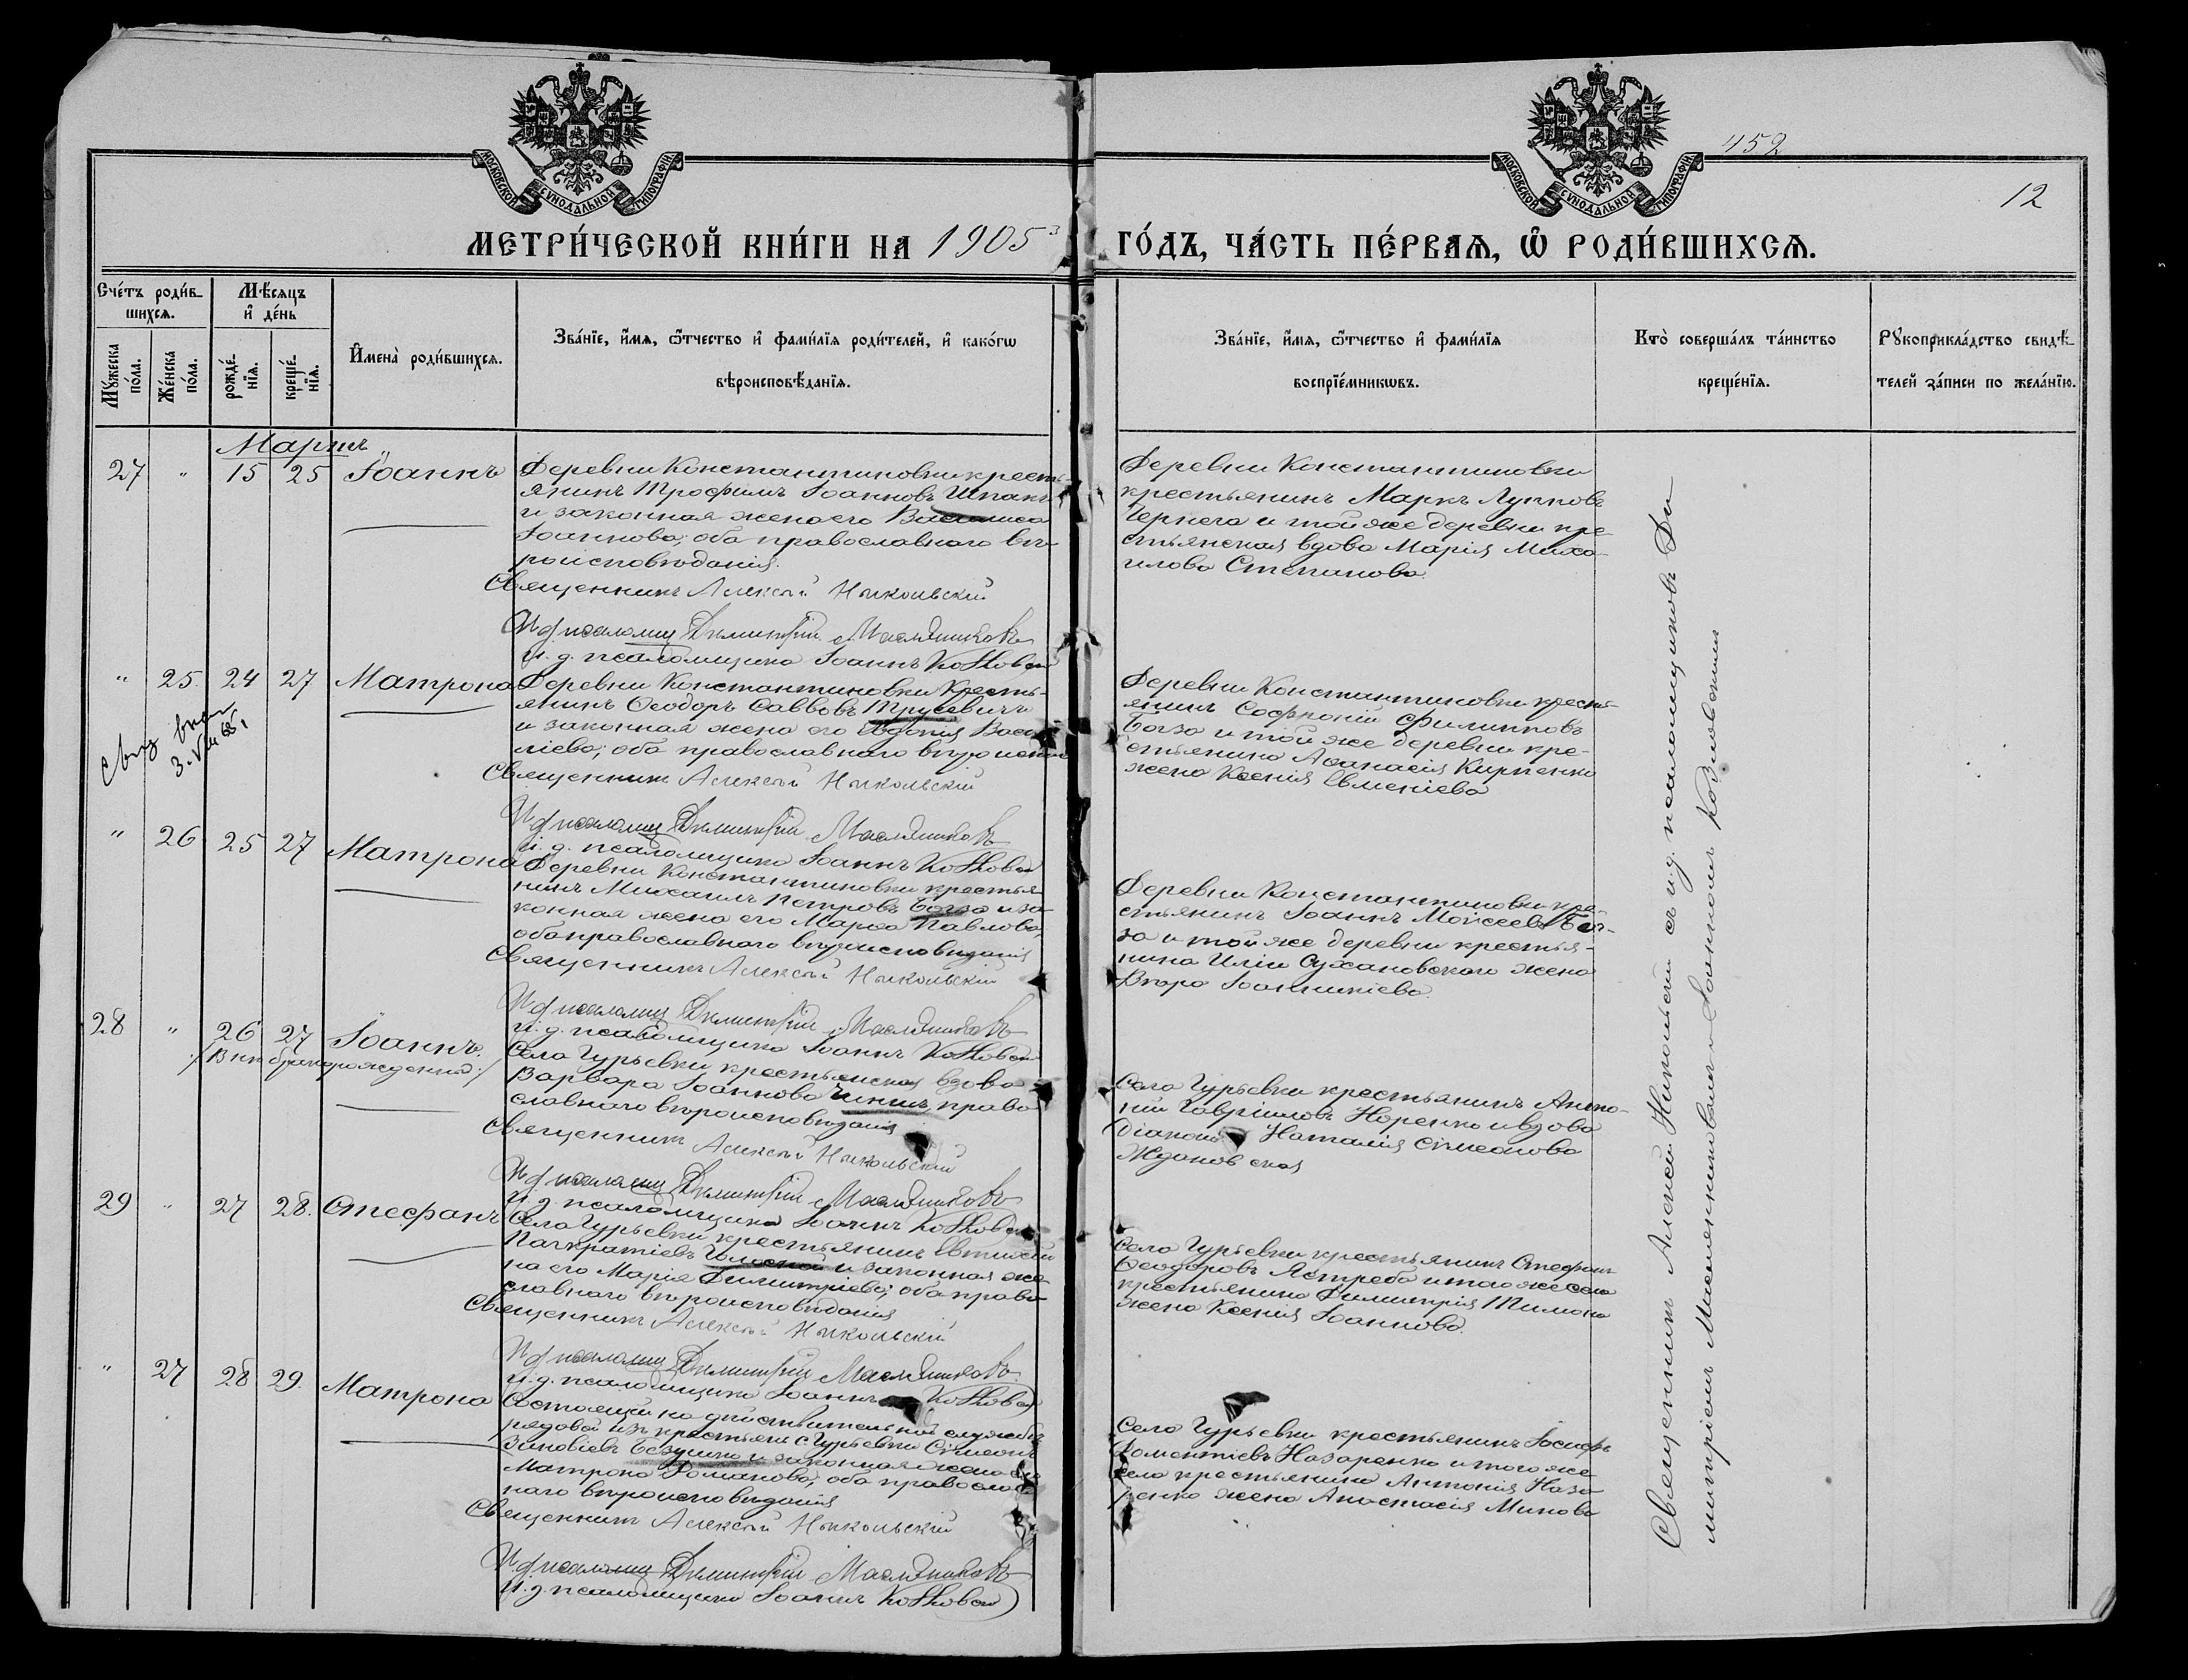 452
12
МОСКОВСКОЙ СѴНОДАЛЬНОЙ ТИПОГРАФІИ
МОСКОВСКОЙ СѴНОДАЛЬНОЙ ТИПОГРАФІИ
МЕТРИ́ЧЕСКОЙ КНИ́ГИ НА 1905 ГО́ДЪ, ЧА́СТЬ ПЕ́РВАѦ, Ѿ РОДИ́ВШИХСѦ.
Сче́тъ роди́в-
шихсѧ.
Мѣ́сѧцъ
и҆ де́нь
Мꙋ́жеска по́ла.
Же́нска по́ла.
рожде́-
нїѧ.
креще́-
нїѧ.
И҆мена̀ роди́вшихсѧ.
Зва́нїе, и҆́мѧ, ѻ҆́тчество и҆ фами́лїѧ роди́телей, и҆ како́гѡ
вѣроисповѣ́данїѧ.
Зва́нїе, и҆́мѧ, ѻ҆́тчество и҆ фами́лїѧ
воспрїе́мникѡвъ.
Кто̀ соверша́лъ та́инство
креще́нїѧ.
Рꙋкоприкла́дство свидѣ́-
телей за́писи по жела́нїю.
Мартъ
27 " 15 25 Іоаннъ
Деревни Константиновки кресть-
янинъ Трофимъ Іоанновъ Шпакъ
и законная жена его Василиса
Іоаннова; оба православнаго вѣ-
роисповѣданія.
Священникъ Алексѣй Никольскій
И д псаломщ Димитрій Масляниковъ
И. д. псаломщика Іоаннъ Козловскій
Деревни Константиновки
крестьянинъ Маркъ Лупповъ
Чернега и той же деревни кре-
стьянская вдова Марія Миха-
илова Степанова.
" 25. 24 27 Матрона
Деревни Константиновки кресть-
янинъ Ѳеодоръ Саввовъ Трусевичъ
и законная жена его Евдокія Васи-
ліева; оба православнаго вѣроиспов
Священникъ Алексѣй Никольскій
И д псаломщ Димитрій Масляниковъ
И. д. псаломщика Іоаннъ Козловскій
Деревни Константиновки кресть-
янинъ Софроній Филипповъ
Богза и той же деревни кре-
стьянина Аѳанасія Кирпенко
жена Ксенія Евменіева
" 26 25 27 Матрона
Деревни Константиновки крестья-
нинъ Михаилъ Петровъ Богза и за-
конная жена его Марѳа Павлова,
оба православнаго вѣроисповѣданія
Священникъ Алексѣй Никольскій
И д псаломщ Димитрій Масляниковъ
И. д. псаломщика Іоаннъ Козловскій
Деревни Константиновки кре-
стьянинъ Іоаннъ Моисеевъ Бог-
за и той же деревни крестья-
нина Иліи Сухановскаго жена
Вѣра Іоанникіева.
28 " 26 27 Іоаннъ.
/Внѣ брачнорожденный/
Села Гурьевки крестьянская вдова
Варвара Іоаннова право-
славнаго вѣроисповѣданія
Священникъ Алексѣй Никольскій
И д псаломщ Димитрій Масляниковъ
И. д. псаломщика Іоаннъ Козловскій
Села Гурьевки крестьянинъ Анто-
ній Гавріиловъ Норенко и вдова
Діакона Наталія Сѵмеонова
Ждановская
29 " 27 28. Стефанъ
Села Гурьевки крестьянинъ Евтихій
Панкратіевъ и законная же-
на его Марія Димитріева; оба право-
славнаго вѣроисповѣданія
Священникъ Алексѣй Никольскій
И д псаломщ Димитрій Масляниковъ
И. д. псаломщика Іоаннъ Козловскій
Села Гурьевки крестьянинъ Стефанъ
Ѳеодоровъ Ястреба и того же села
крестьянина Димитрія Тимана
жена Ксенія Іоаннова.
" 27 28 29. Матрона
Состоящій на дѣйствительной службѣ
рядовой изъ крестьянъ с. Гурьевки Сѵмеонъ
Зиновіевъ и законная жена его
Матрона Романова, оба православ-
наго вѣроисповѣданія
Священникъ Алексѣй Никольскій
И д псаломщ Димитрій Масляниковъ
И. д. псаломщика Іоаннъ Козловскій
Села Гурьевки крестьянинъ Іосифъ
Доментіевъ Назаренко и того же
села крестьянина Антонія Наза-
ренко жена Анастасія Минова
Священникъ Алексѣй Никольскій съ и. д. псаломщиковъ Ди-
митріемъ Маслянниковымъ и Іоанномъ Козловскимъ